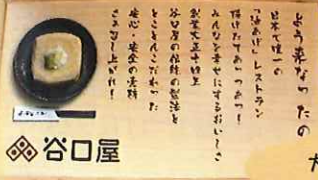 よう来なったの
日本で唯一の
「油あげ」レストラン
揚げたてあつあつ!
みんなを幸せにするおいしさ
創業大正十四年
谷口屋の伝統の製法と
とことんこだわった
安心・安全の素材
さあ召し上がれ!
谷口屋